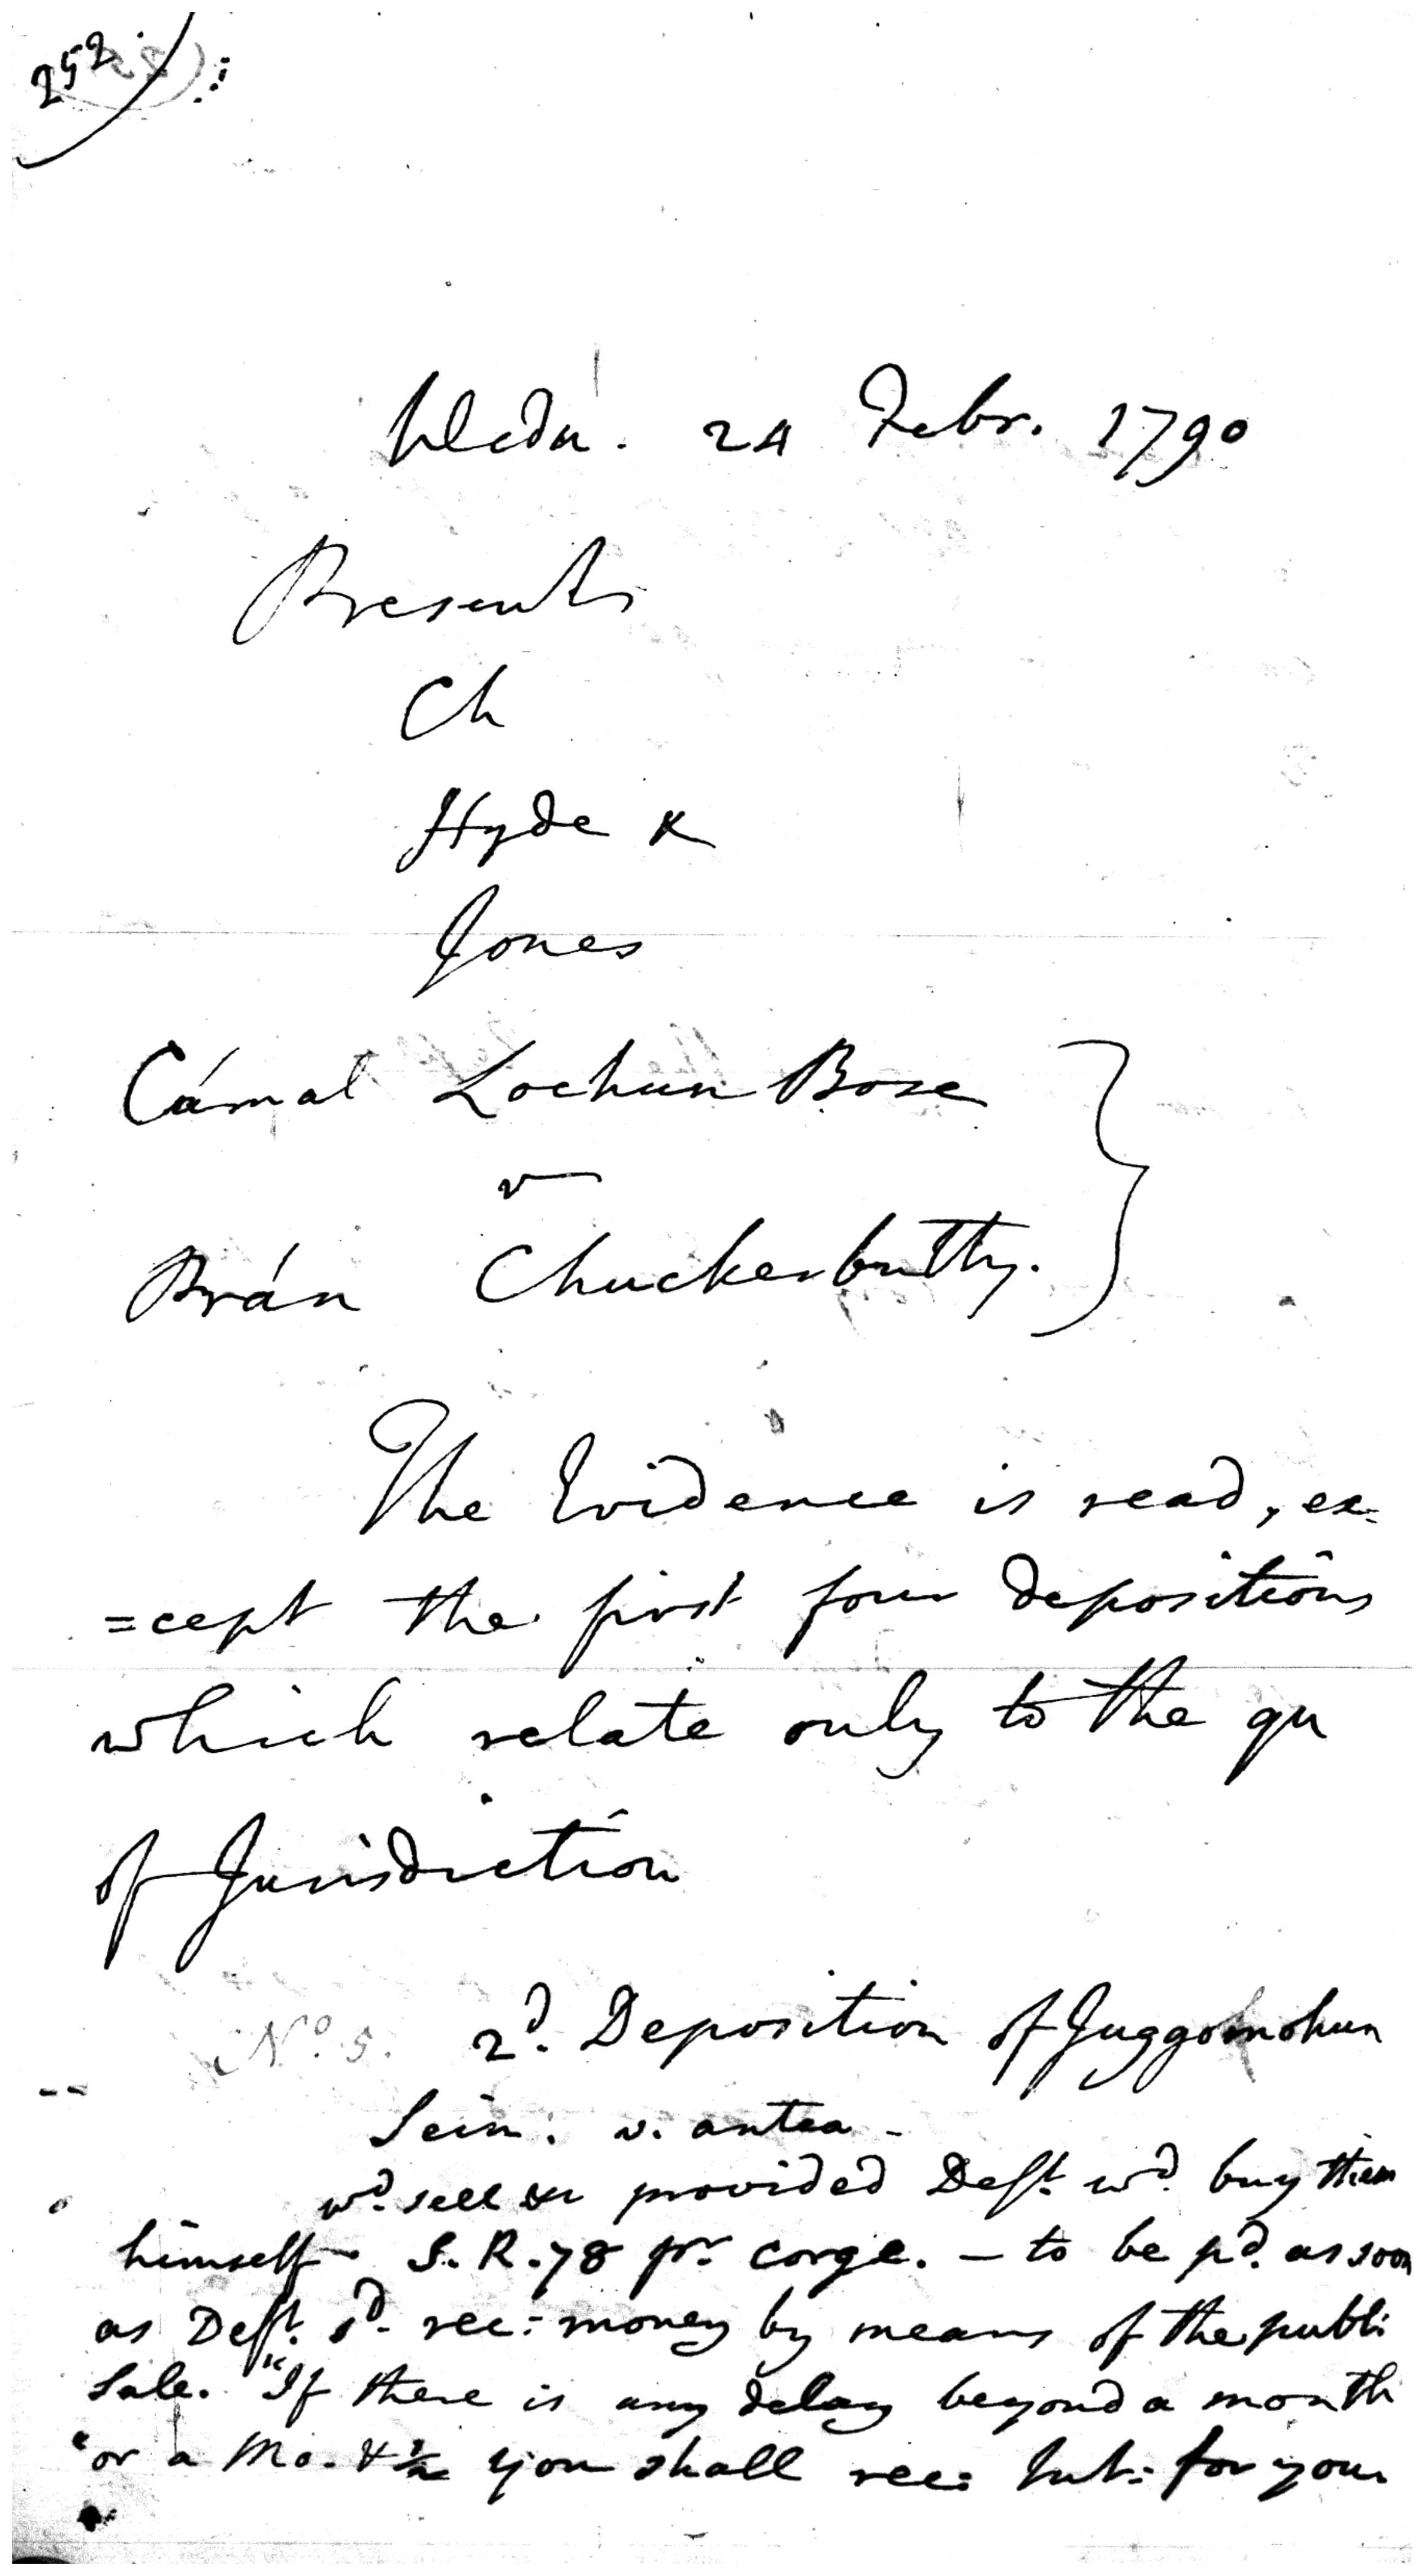 252
Wedn. 24 Febr. 1790
Present
Ch
Hyde &
Jones
Cámal Lochun Bose
v
Prán Chuckerbutty.
The Evidence is read, ex-
=cept the first four depositions
which relate only to the qu
of Jurisdiction
No. 5. 2d. Deposition of Juggomohun
Sein. v. antea -
wd. sell provided Deft. wd. buy them
himself - S. R. 78 pr. corge. - to be pd. as soon
as Deft. sd. rec: money by means of the publi
Sale. "If there is any delay beyond a month
"or a Mo. & ½ you shall rec: Int: for your